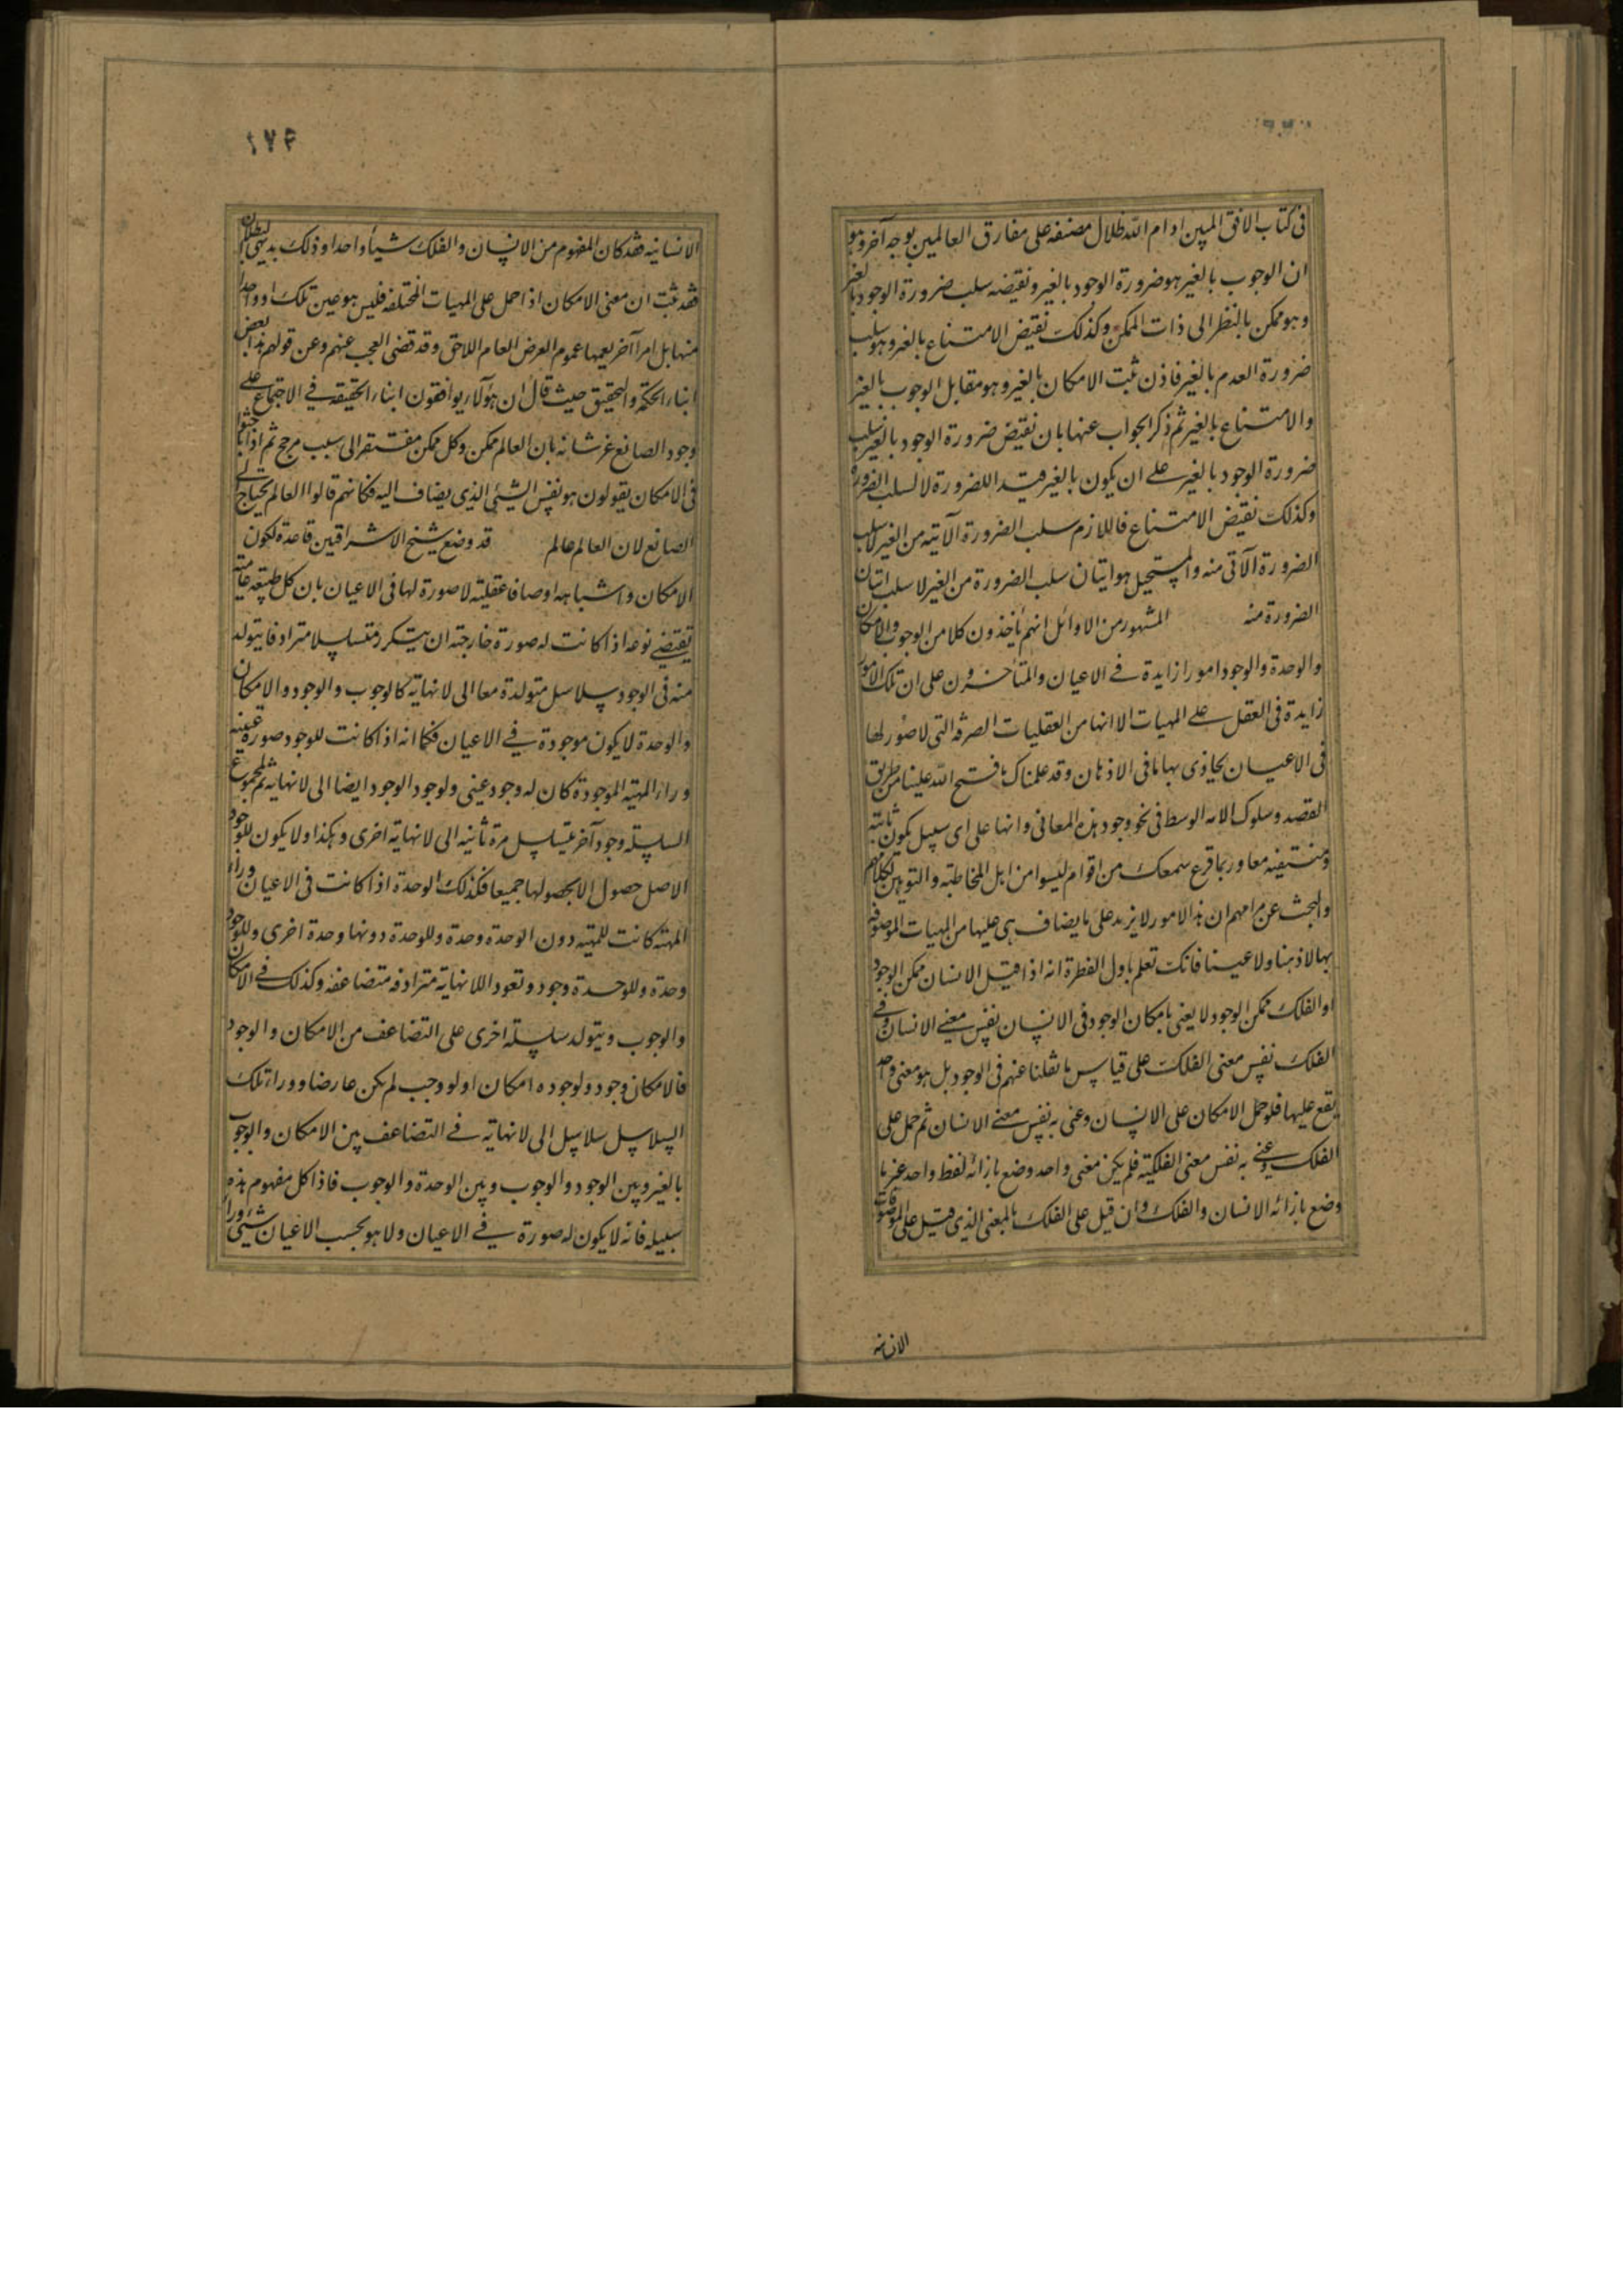 فى كتاب الافق المبين ادام الله ظلال مصنفه على مفارق العالمين بوجه آخر وهو
ان الوجوب بالغير هو ضرورة الوجود بالغير ونقيضه سلب ضرورة الوجود بالغير
وهو ممكن بالنظر الى ذات الممكن وكذلك نقيض الامتناع بالغير وهو سلب
ضرورة العدم بالغير فاذن ثبت الامكان بالغير وهو مقابل الوجوب بالغير
والامتناع بالغير ثم ذكر الجواب عنها بان نقيض ضرورة الوجود بالغير سلب
ضرورة الوجود بالغير على ان يكون بالغير قيدا للضرورة لا لسلب الضرورة
وكذلك نقيض الامتناع فاللازم سلب الضرورة الآتية من الغير لا سلب
الضرورة الآتى منه والمستحيل هو اتيان سلب الضرورة من الغير لا سلب اتيان
الضرورة منه المشهور من الاوائل انهم يأخذون كلا من الوجوب والامكان
والوحدة والوجود امورا زايدة فى الاعيان والمتأخرون على ان تلك الامور
زايدة فى العقل على المهيات الا انها من العقليات الصرفة التى لا صور لها
فى الاعيان يحاذى بها ما فى الاذهان وقد علمناك ما فتح الله علينا من طريق
القصد وسلوك الامه الوسط فى نحو وجود هذه المعانى وانها على اى سبيل يكون ثابتة
ومنتفيه معا وربما قرع سمعك من اقوام ليسوا من اهل المخاطبة والتوهين لكلامهم
والبحث عن مرامهم ان هذا الامور لا يزيد على ما يضاف هى عليها من المهيات الموصوفه
بها لا ذهنا ولا عينا فانك تعلم باول الفطرة انه اذا قيل الانسان ممكن الوجود
او الفلك ممكن الوجود لا يعنى بامكان الوجود فى الانسان نفس معنى الانسان وفى
الفلك نفس معنى الفلك على قياس ما نقلنا عنهم فى الوجود بل هو معنى واحد
يقع عليها فلو حمل الامكان على الانسان وعنى به نفس معنى الانسان ثم حمل على
الفلك وعنى به نفس معنى الفلكية فلم يكن معنى واحد وضع بازائه لفظ واحد غير ما
وضع بازائه الانسان والفلك وان قيل على الفلك بالمعنى الذى قيل على الموصوفات
الانسانيه
١٧٤
الانسانيه فقد كان المفهوم من الانسان والفلك شيأ واحدا وذلك بديهى البطلان
فقد ثبت ان معنى الامكان اذا حمل على المهيات المختلفه فليس هو عين تلك او واحدا
منها بل امرا آخر يعمها عموم العرض العام اللاحق وقد قضى العجب عنهم وعن قولهم هذا بعض
ابناء الحكمة والتحقيق حيث قال ان هؤلاء يوافقون ابناء الحقيقه فى الاجتماع على
وجود الصانع عز شانه بان العالم ممكن وكل ممكن مفتقر الى سبب مرجح ثم اذا باحثوا
فى الامكان يقولون هو نفس الشيئ الذى يضاف اليه فكانهم قالوا العالم يحتاج الى
الصانع لان العالم عالم قد وضع شيخ الاشراقيين قاعدة لكون
الامكان واشباهه اوصافا عقلية لا صورة لها فى الاعيان بان كل طبيعه عامة
تقتضى نوعه اذا كانت له صورة خارجته ان يتكرر متسلسلا مترادفا يتولد
منه فى الوجود سلاسل متولدة معا الى لا نهاية كالوجوب والوجود والامكان
والوحدة لا يكون موجودة فى الاعيان فكما انه اذا كانت للوجود صورة عينية
وراء المهية الموجودة كان له وجود عينى ولوجود الوجود ايضا الى لا نهاية ثم لمجموع
السلسلة وجود آخر يتسلسل مرة ثانية الى لا نهاية اخرى وهكذا ولا يكون للوجود
الاصل حصول الا بحصولها جميعا فكذلك الوحدة اذا كانت فى الاعيان وراء
المهته كانت للمهية دون الوحدة وحدة وللوحدة دونها وحدة اخرى وللوجود
وحدة وللوحدة وجود وتعود اللانهاية مترادفه متضاعفه وكذلك فى الامكان
والوجوب ويتولد سلسلة اخرى على التضاعف من الامكان والوجود
فالامكان وجود ولوجوده امكان او لو وجب لم يكن عارضا ووراء تلك
السلاسل سلاسل الى لا نهاية فى التضاعف بين الامكان والوجوب
بالغير وبين الوجود والوجوب وبين الوحدة والوجوب فاذا كل مفهوم هذه
سبيله فانه لا يكون له صورة فى الاعيان ولا هو بحسب الاعيان شيئ وراء